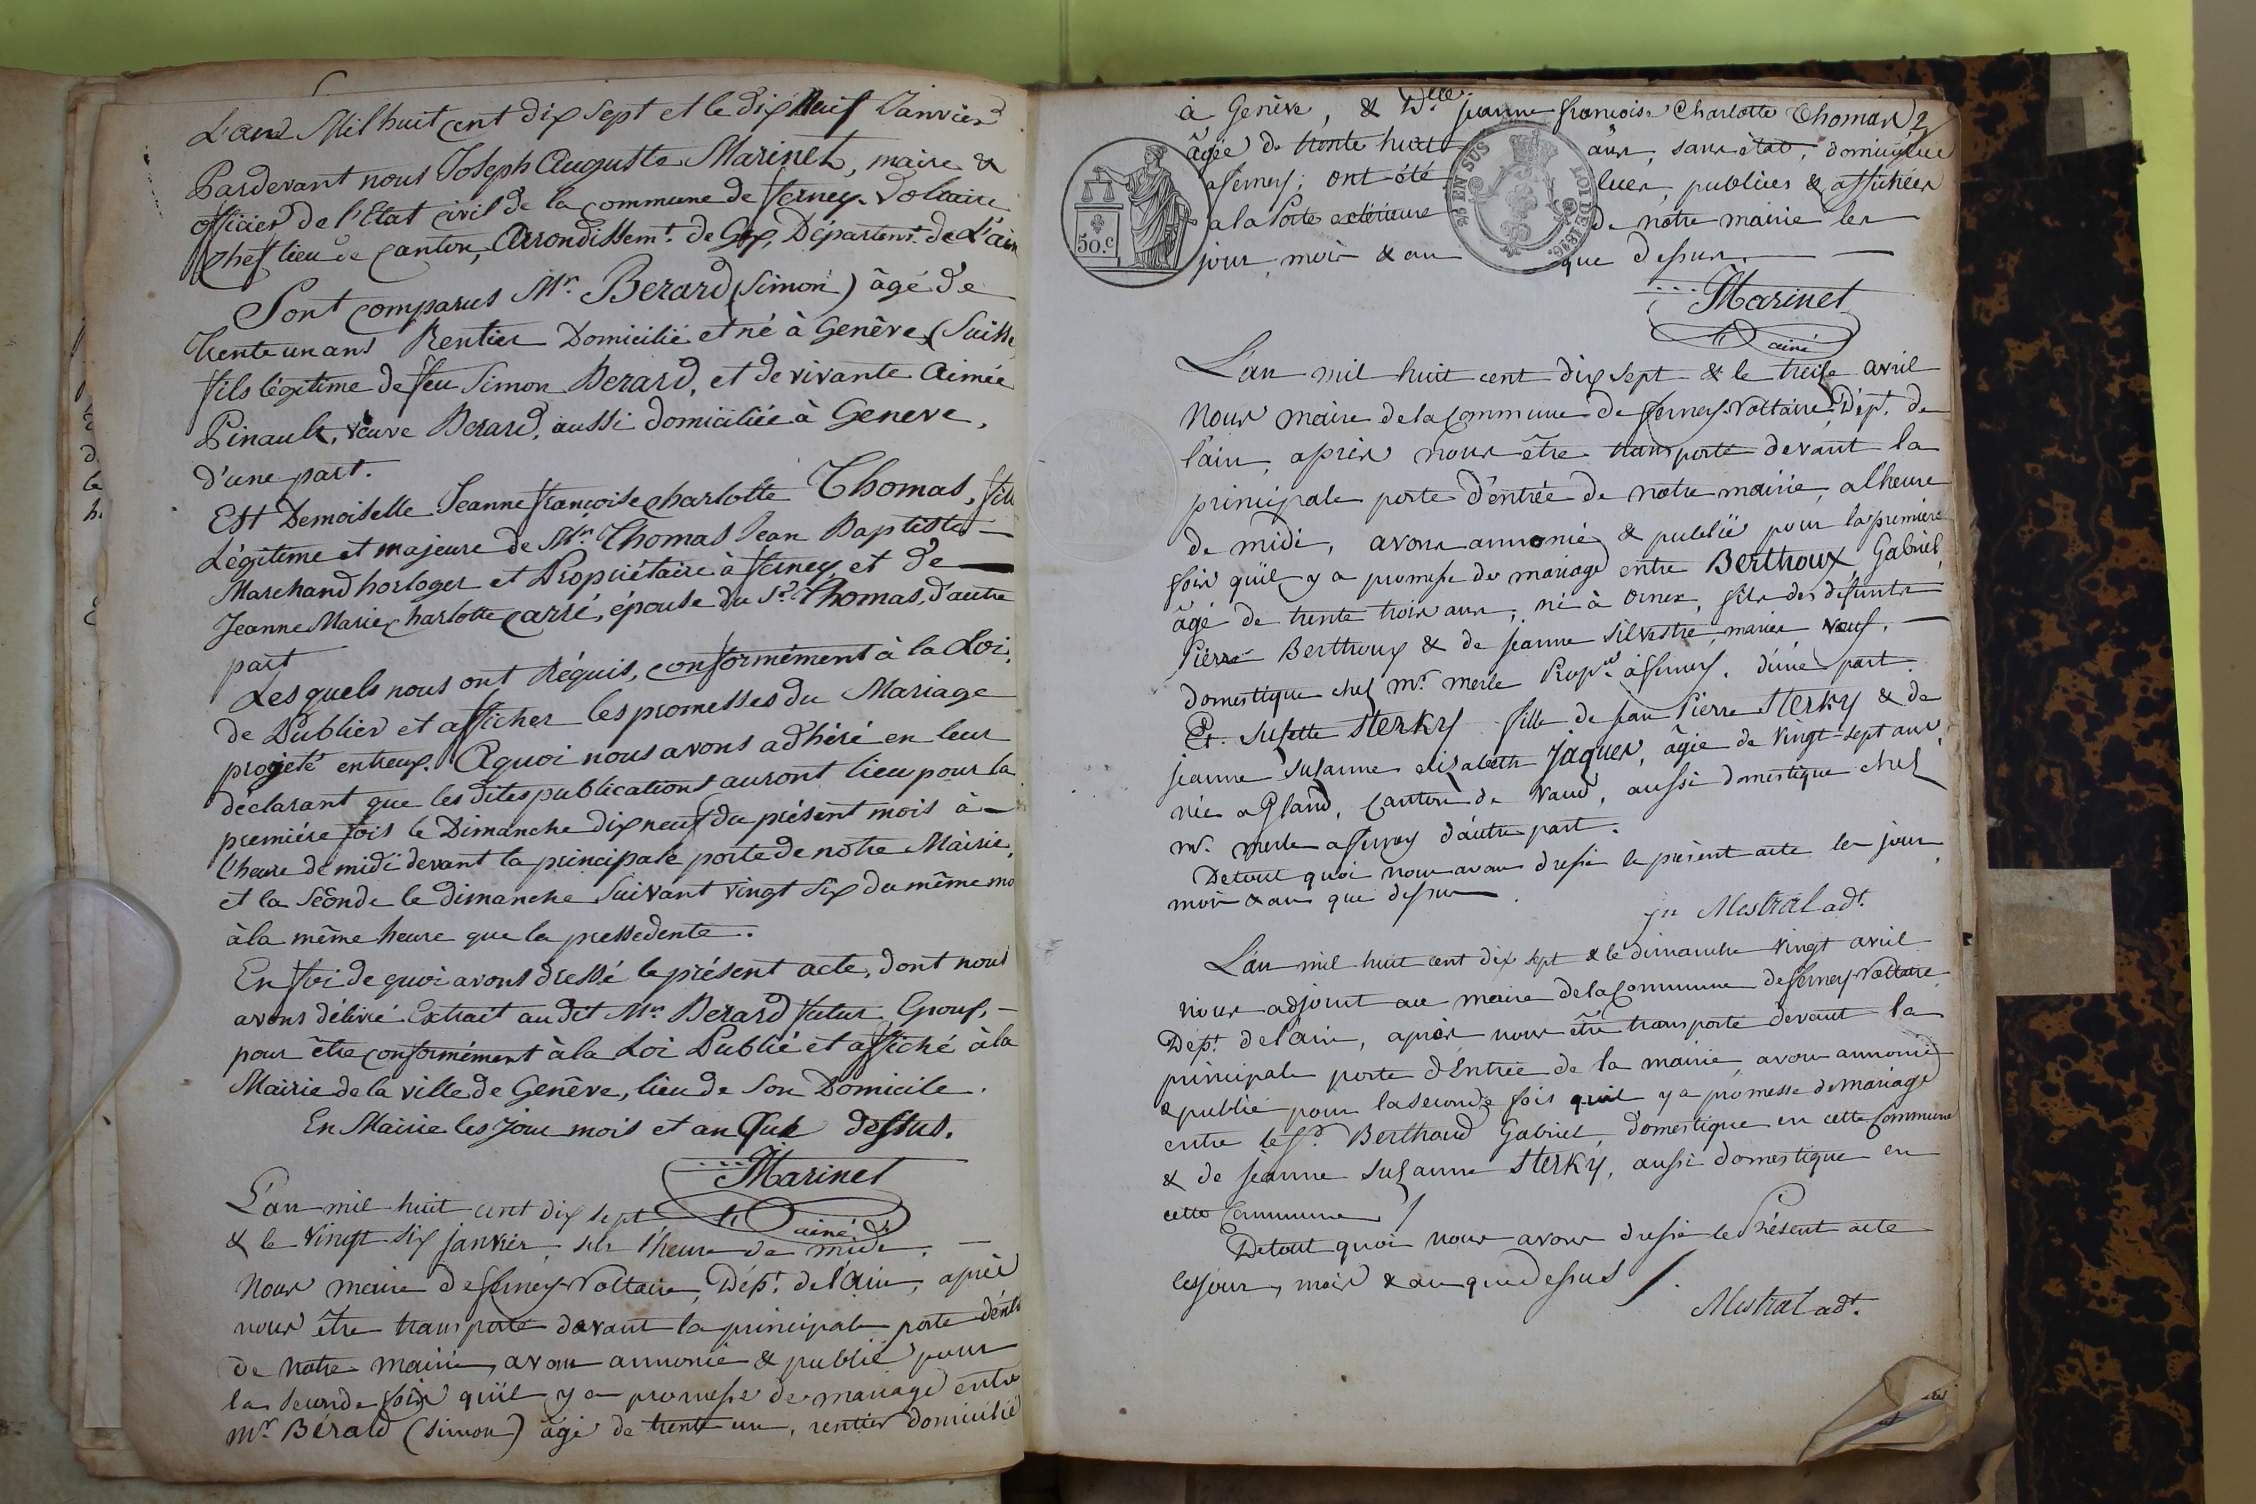 L'an Mil huit cent dix sept et le dix Neuf Janvier
Pardevant nous Joseph Auguste Marinet, maire &
officier de l'Etat civil de la commune de ferney-Voltaire
chef lieu de canton, Arrondissemt. de Gex, Départemt. de L'ain
Sont comparus Mr. Berard (Simon) âgé de
trente un ans Rentier Domicilié et né à Genève (Suisse
fils légitime de feu Simon Berard, et de vivante Aimée
Pinault, veuve Berard, aussi domiciliée à Geneve,
d'une part.
Et Demoiselle Jeanne françoise charlotte Thomas, fille
Légitime et majeure de Mr. Thomas Jean Baptiste
Marchand horloger et Propriétaire à ferney et de
Jeanne Marie charlotte carré, épouse du Sr. Thomas, d'autre
part
Les quels nous ont Réquis, conformément à la Loi,
de Publier et afficher les promesses du Mariage
projeté entreux. Aquoi nous avons adhéré en leur
déclarant que les dites publications auront lieu pour la
première fois le Dimanche dix neuf du présent mois à
l'heure de midi devant la principale porte de notre Mairie,
et la Séconde le dimanche Suivant vingt six du même mo
à la même heure que la pressedente.
En foi de quoi avons dressé le présent acte, dont nous
avons délivré Extrait au dit Mr. Berard futur Epoux,
pour être conformément à la Loi Publié et affiché à la
Mairie de la ville de Genêve, lieu de Son Domicile.
En Mairie les Jour mois et an Que dessus.
Marinet
ainé
L'an mil huit cent dix sept
& le vingt six janvier, sur l'heure de midi,
Nous maire de ferney Voltaire, Dépt. de l'Ain, après
nous être transporté devant la principale porte d'entr
de notre mairie, avons annoncé & publié pour
la seconde fois qu'il y a promesse de mariage entre
Mr Bérard (simon) âgé de trente un, rentier domicilié
à Genève, & Dlle. jeanne françoise Charlotte Thomas 2
âgée de trente huit ans, sans état, domiciliée
a ferney; ont été lues, publiées & affichées
a la Porte extérieure de notre mairie les
jour, mois & an que dessus.
50.c
25 EN SUS
LOI DE 1816.
Marinet
ainé
L'an mil huit cent dix sept & le treize avril
Nous maire de la Commune de ferney-Voltaire, Dépt. de
l'ain, après nous être transporté devant la
principale porte d'entrée de notre mairie, a l'heure
de midi, avons annoncé & publié pour la première
fois qu'il y a promesse de mariage entre Berthoux Gabriel,
âgé de trente trois ans, né à Ornex, fils des défunts
Pierre Berthoux & de jeanne Silvestre, mariés, veuf,
domestique chez Mr. Merle Propre. à ferney. d'une part
Et. Susette Sterky fille de jean Pierre Sterky & de
jeanne suzanne elizabeth Jaques, âgée de vingt-sept ans,
née a Gland, Canton de Vaud, aussi domestique chez
Mr. Merle a ferney d'autre part.
De tout quoi nous avons dressé le présent acte les jour
mois & an que dessus
Mestral adt.
L'an mil huit cent dix sept & le dimanche vingt avril
nous adjoint au maire de la Commune de ferney-Voltaire
Dépt. de l'ain, après nous être transporté devant la
principale porte d'Entrée de la mairie, avons annoncé
& publié pour la seconde fois qu'il y a promesse de mariage
entre le Sr. Berthoud Gabriel, domestique en cette Commune
& de jeanne suzanne Sterky, aussi domestique en
cette Commune
De tout quoi nous avons dressé le Présent acte
les jour, mois & an que dessus
Mestral adt.